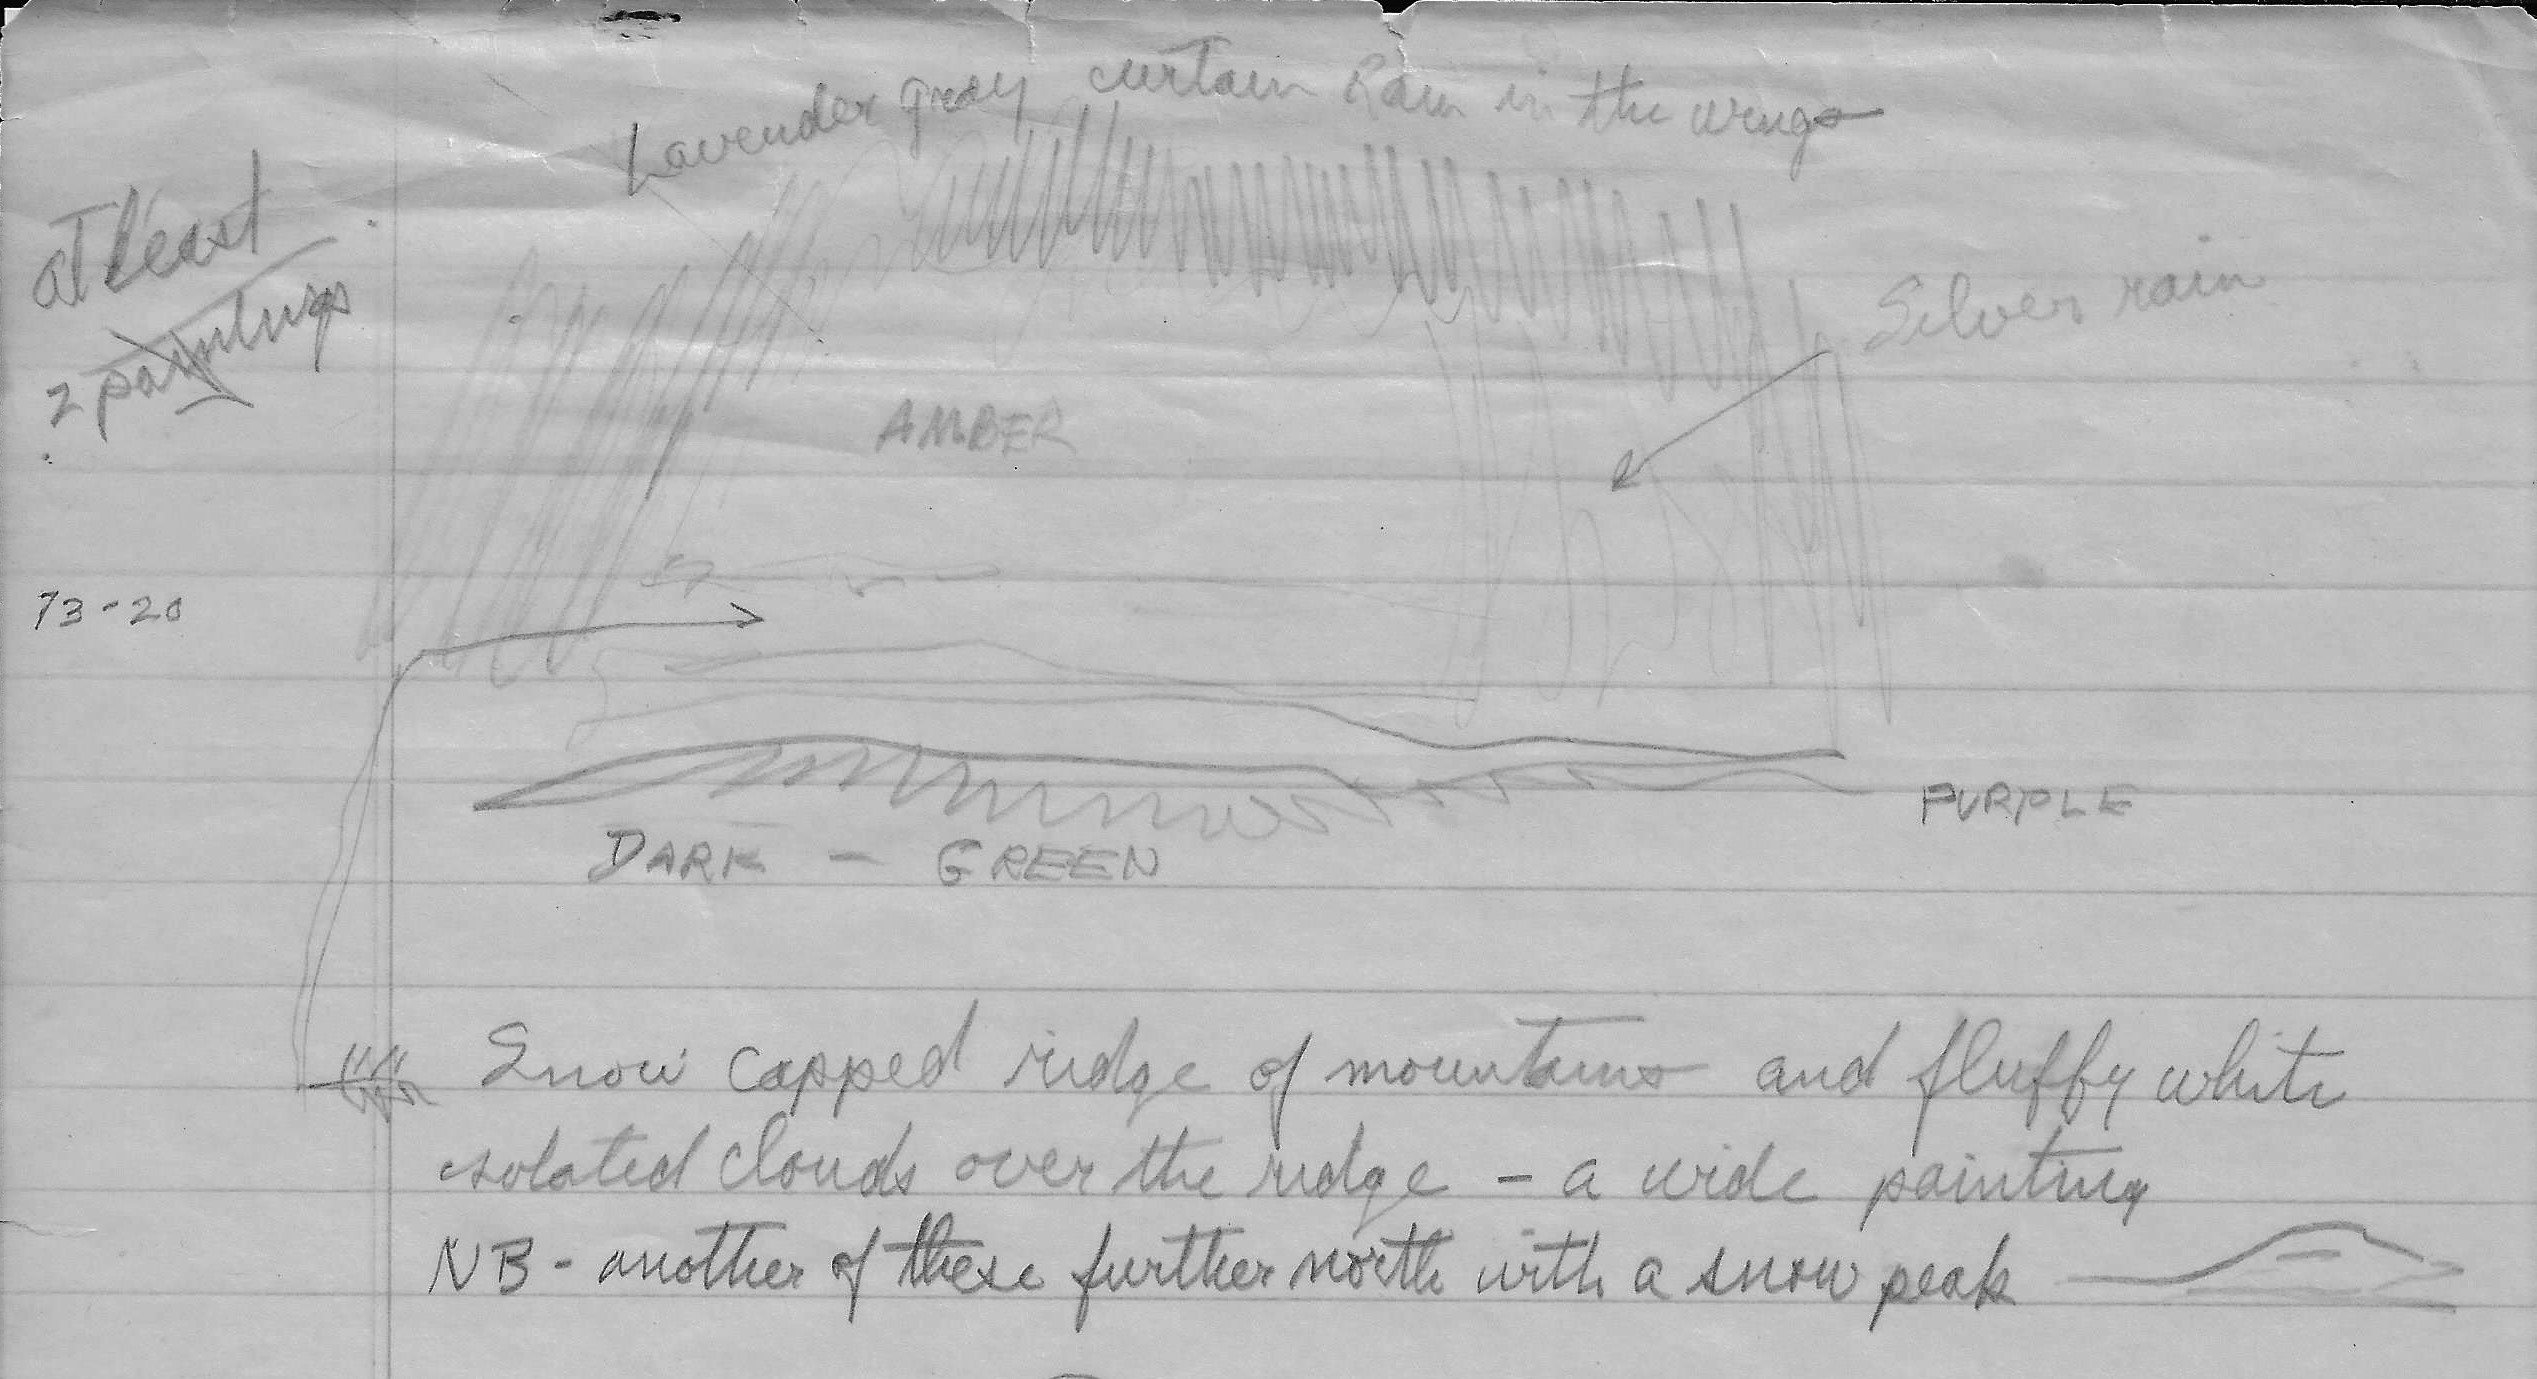 Lavender gray curtain Rain in the wings
at least
2 paintings
Silver rain
AMBER
73-20
PURPLE
DARK - GREEN
Snow capped ridge of mountains and fluffy white
isolated clouds over the ridge - a wide painting
NB - another of these further north with a snow peak